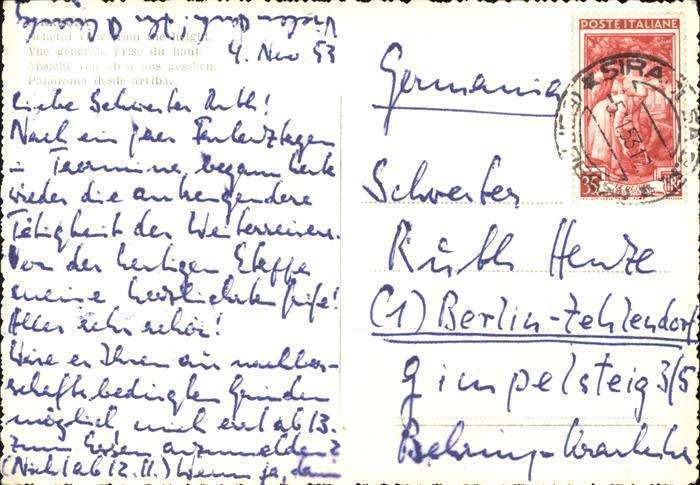 Vielen Dank! Ihr
4. Nov 53
General view from the height.
Vue générale prise du haut.
Ansicht von oben aus gesehen.
Panorama desde arriba.
Liebe Schwester Ruth!
Nach ein paar Faulenztagen
in Taormina, begann heute
wieder die anstrengendere
Tätigkeit des Weiterreisens.
Von der heutigen Etappe
meine herzlichsten Grüße!
Alles sehr schön!
Wäre es Ihnen aus nachbar-
schaftsbedingten Gründen
möglich mich erst ab 13.
zum Essen anzumelden?
(Nicht ab 12.11.) Wenn ja, dann
POSTE ITALIANE
35
SIRA
Germania
Schwester
Ruth Henze
(1) Berlin-Zehlendorf
Gimpelsteig 3/5
Behring-Krankenhs